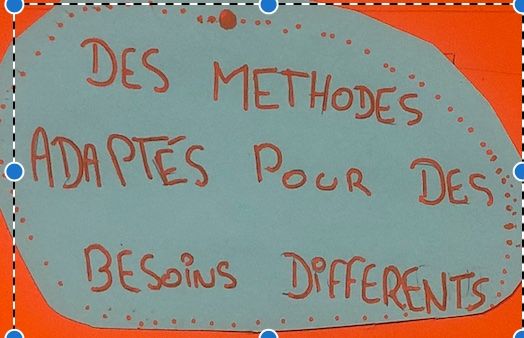 DES METHODES
ADAPTÉS POUR DES
BESOiNS DiFFERENTS